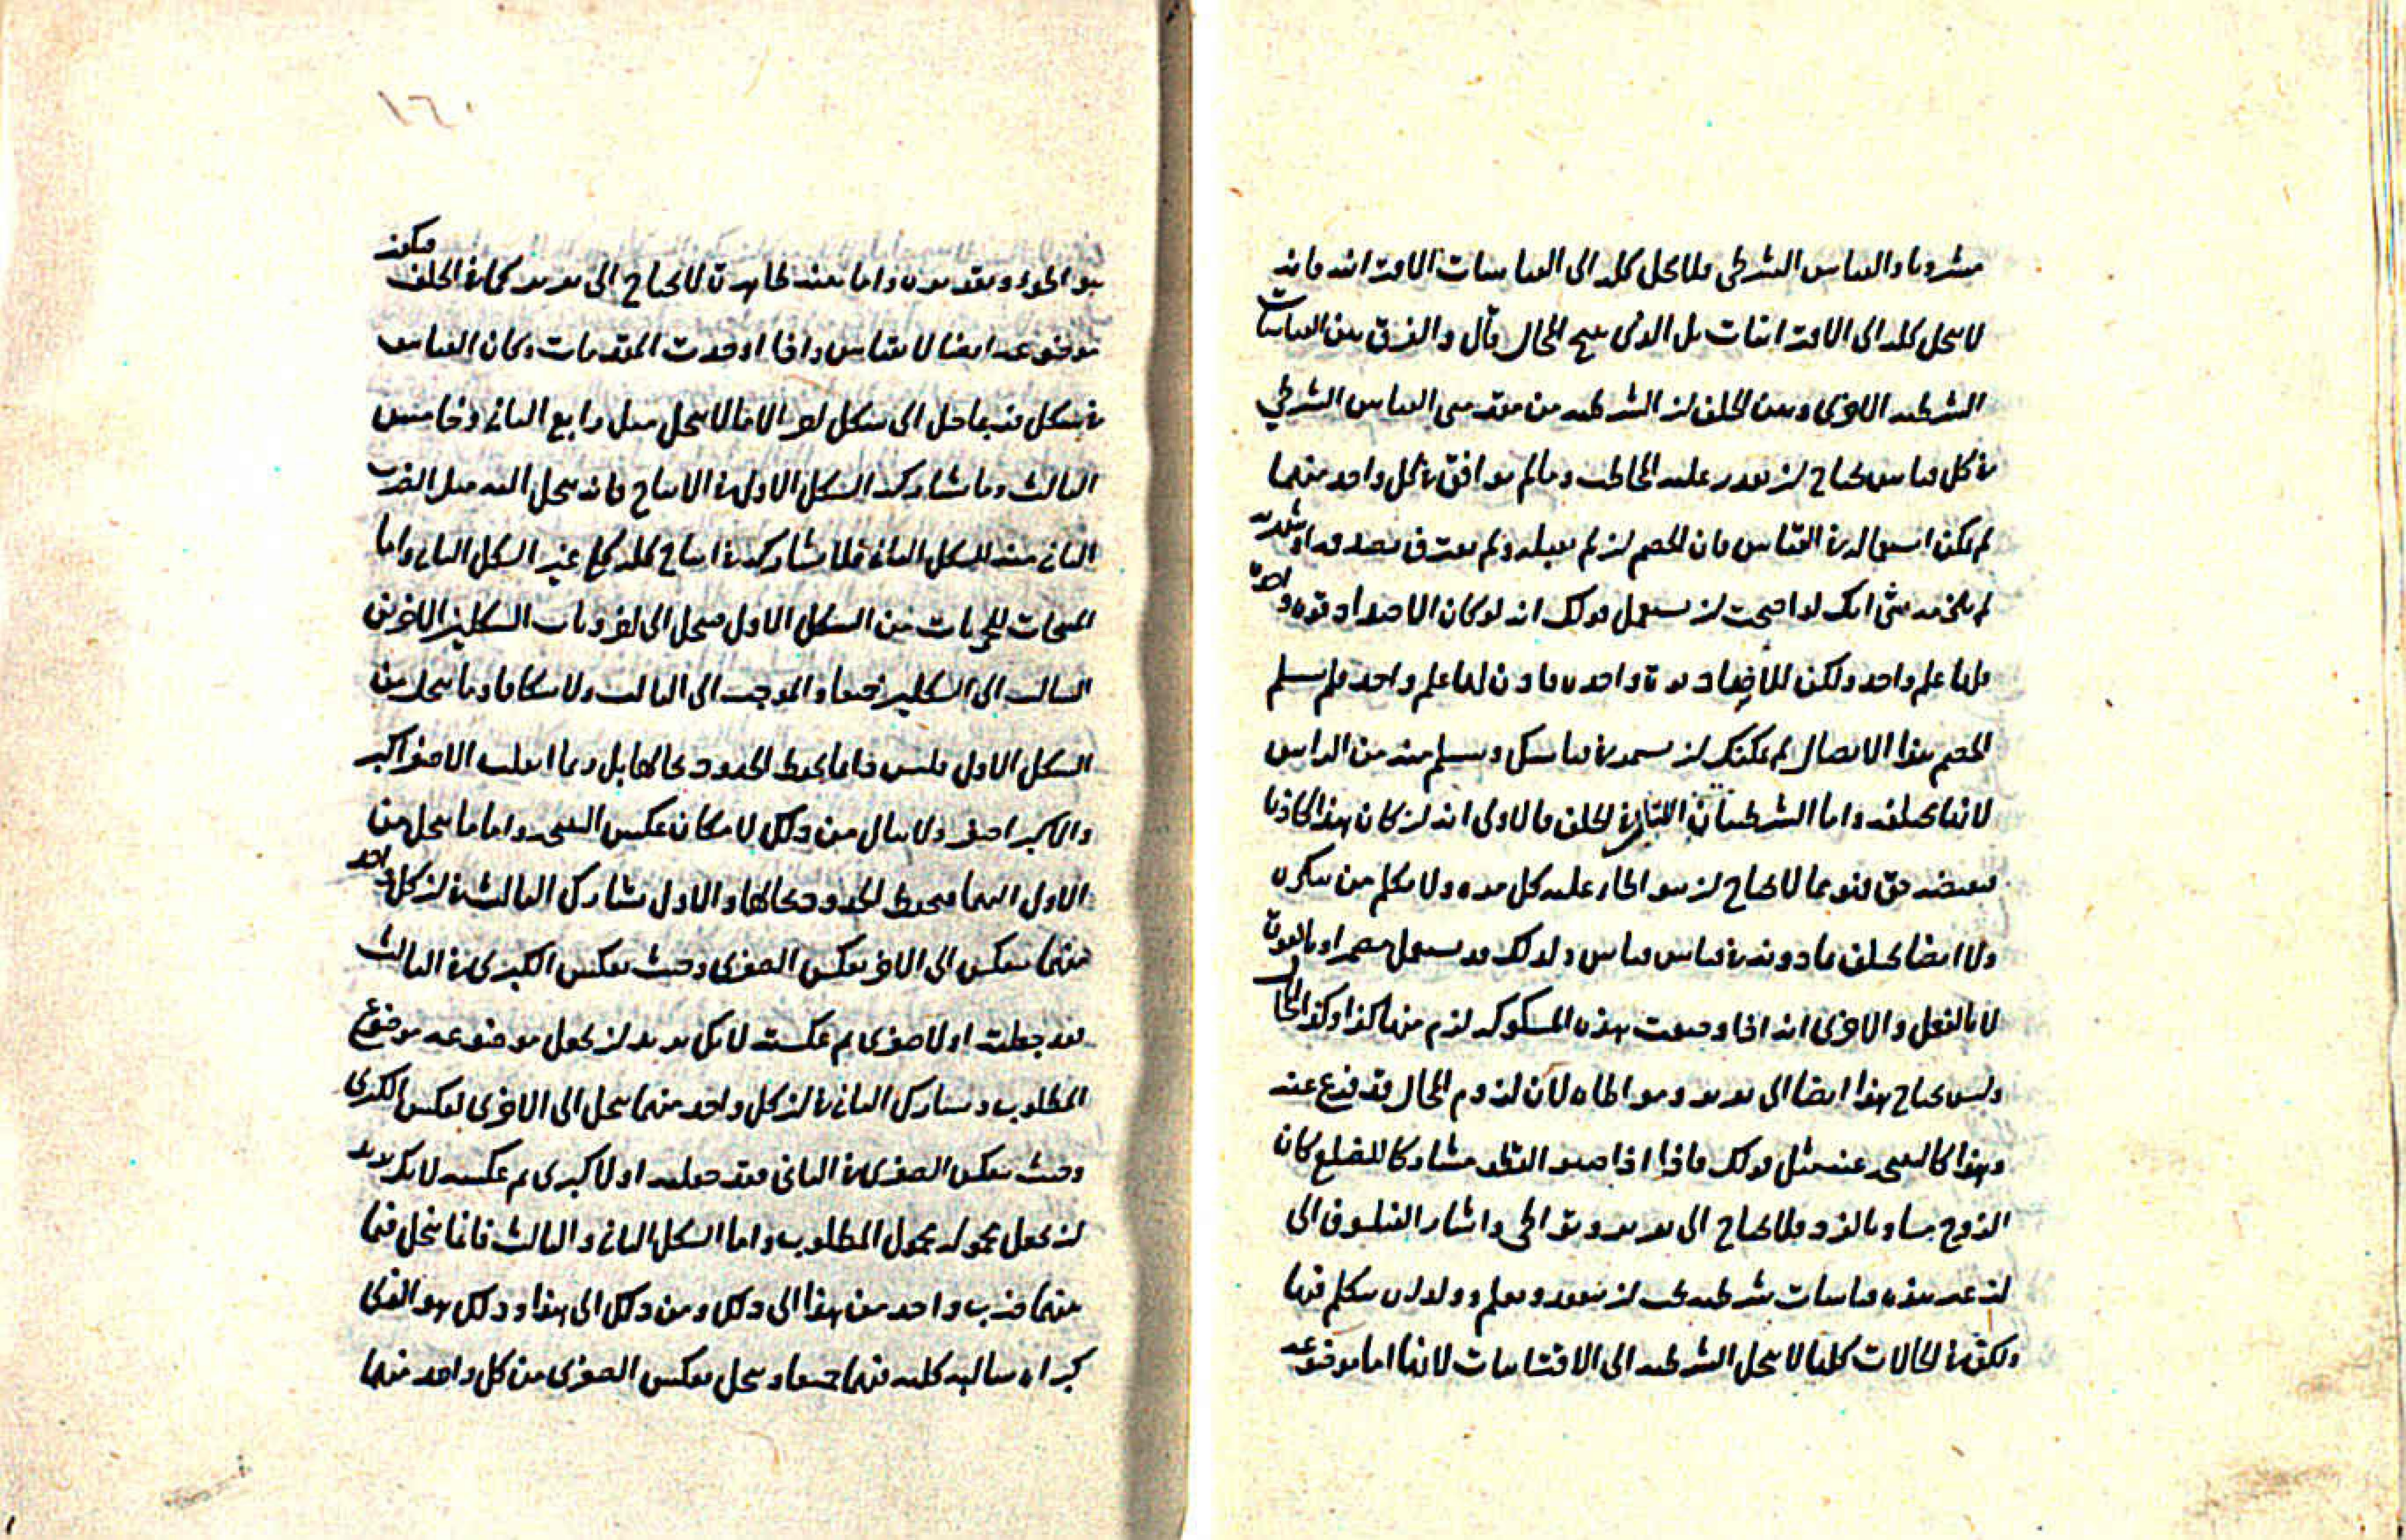 مشروبا والقياس الشرطي فلا يحل كله الى القياسات الاقترانيه فانه
لا يحل كله الى الاقترانيات بل الذي ينتج المحال قال والفرق بين القياسات
الشرطيه الاخرى وبين الخلف ان الشرطيه من مقدمتى القياس الشرطي
في كل قياس يحتاج ان يقدر عليه المخاطب وما لم يوافق في كل واحد منهما
لم يكن استعماله في القياس فان الخصم ان لم يقبله ولم يعترف بصدقه او
لم شى انك لو احببت ان تستعمل قولك انه لو كان الاضداد قوه واحده
فلها علم واحد ولكن للاضداد قوة واحده فاذن لها علم واحد فلم يسلم
الخصم هذا الاتصال لم يمكنك ان في قياسك وتسلم منه من الراس
لانها مختلفه واما الشرطيتان اللتان في الخلف فالاولى انه ان كان هذا كاذبا
فنقيضه حق فنوعها لا يحتاج ان يتواطا عليه كل مره ولا يكلم من ينكره
ولا ايضا يختلف مادونه في قياس قياس ولذلك قد يستعمل مضمرا وبالقوة
لا بالفعل والاخرى انه اذا وضعت هذه المشكوكه لزم منها كذا وكذا المحال
وليس يحتاج هذا ايضا الى تقدير ومواطاه لان لزوم المحال قد فرغ عنه
وهذا كالنتيجه عنه مثل قولك فاذا اذا صير القطر مشاركا للضلع كان
الزوج مساويا للفرد فلا يحتاج الى تقدير وتواطى واشار الفيلسوف الى
ان غير هذه قياسات شرطيه يجب ان تتعدد وتعلم ووعد ان يتكلم فيها
ولكن في الحالات كلها لا يحل الشرطيه الى الاقترانيات لانها اما موضوعه
١٦٠
فيكون
بتواطؤ وتقدير واما بينه ظاهرة لا يحتاج الى تقدير كما في الخلف
موضوعه ايضا لا بقياس واذا اوخذت المقدمات وكان القياس
في شكل فربما حل الى شكل اخر الا ما لا يحل مثل رابع الثاني وخامس
الثالث وما يشارك الشكل الاول في الانتاج فانه يحل اليه مثل الضرب
الثاني منه للشكل الثاني فلا يشاركه في انتاج كله كلي غير الشكل الثاني واما
المنتجات للجزئيات من الشكل الاول فيحل الى جزويات الشكلين الاخرين
السالب الى الشكلين جميعا والموجب الى الثالث ولا وما يحل من
الشكل الاول فليس دائما يحفظ الحدود بحالها بل ربما انقلب الاصغر اكبر
والاكبر اصغر ولا يبال من ذلك لامكان عكس النتيجه واما ما يحل من
الاول اليهما فيحفظ الحدود بحالها والاول يشارك الثالث في ان كل واحد
منهما ينعكس الى الاخر بعكس الصغرى وحيث يعكس الكبرى في الثالث
فقد جعلت اولا صغرى ثم عكست لانك تريد ان تجعل موضوعه موضوع
المطلوب ويشارك الثاني في ان كل واحد منهما يحل الى الاخرى بعكس الكبرى
وحيث يعكس الصغرى في الثاني فقد جعلته اولا كبرى ثم عكسته لانك تريد
ان تجعل محموله محمول المطلوب واما الشكل الثاني والثالث فانما ينحل فيما
بينهما ضرب واحد من هذا الى ذلك ومن ذلك الى هذا وذلك هو الذي
كبراه سالبه كليه فيهما جميعا ويحل بعكس الصغرى من كل واحد منهما